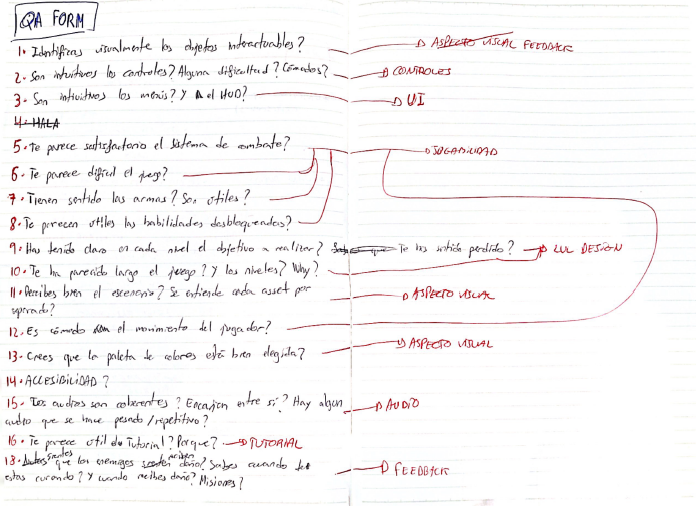 QA FORM
1. Identificas visualmente los objetos interactuables? → ASPECTO VISUAL FEEDBACK
2. Son intuitivos los controles? Alguna dificultad? Cómodos? → CONTROLES
3. Son intuitivos los menús? Y el HUD? → UI
4. HALA
5. Te parece satisfactorio el sistema de combate? → JUGABILIDAD
6. Te parece dificil el juego?
7. Tienen sentido las armas? Son utiles?
8. Te parecen utiles las habilidades desbloqueadas?
9. Has tenido claro en cada nivel el objetivo a realizar? Te has sentido perdido? → LVL DESIGN
10. Te ha parecido largo el juego? Y los niveles? Why?
11. Percibes bien el escenario? Se entiende cada asset por
separado? → ASPECTO VISUAL
12. Es cómodo el movimiento del jugador?
13. Crees que la paleta de colores está bien elegida? → ASPECTO VISUAL
14. ACCESIBILIDAD?
15. Los audios son coherentes? Encajan entre sí? Hay algun
audio que se hace pesado/repetitivo? → AUDIO
16. Te parece util el Tutorial? Porque? → TUTORIAL
18. sientes que los enemigos reciben daño? Sabes cuando te
estas curando? Y cuando recibes daño? Misiones? → FEEDBACK